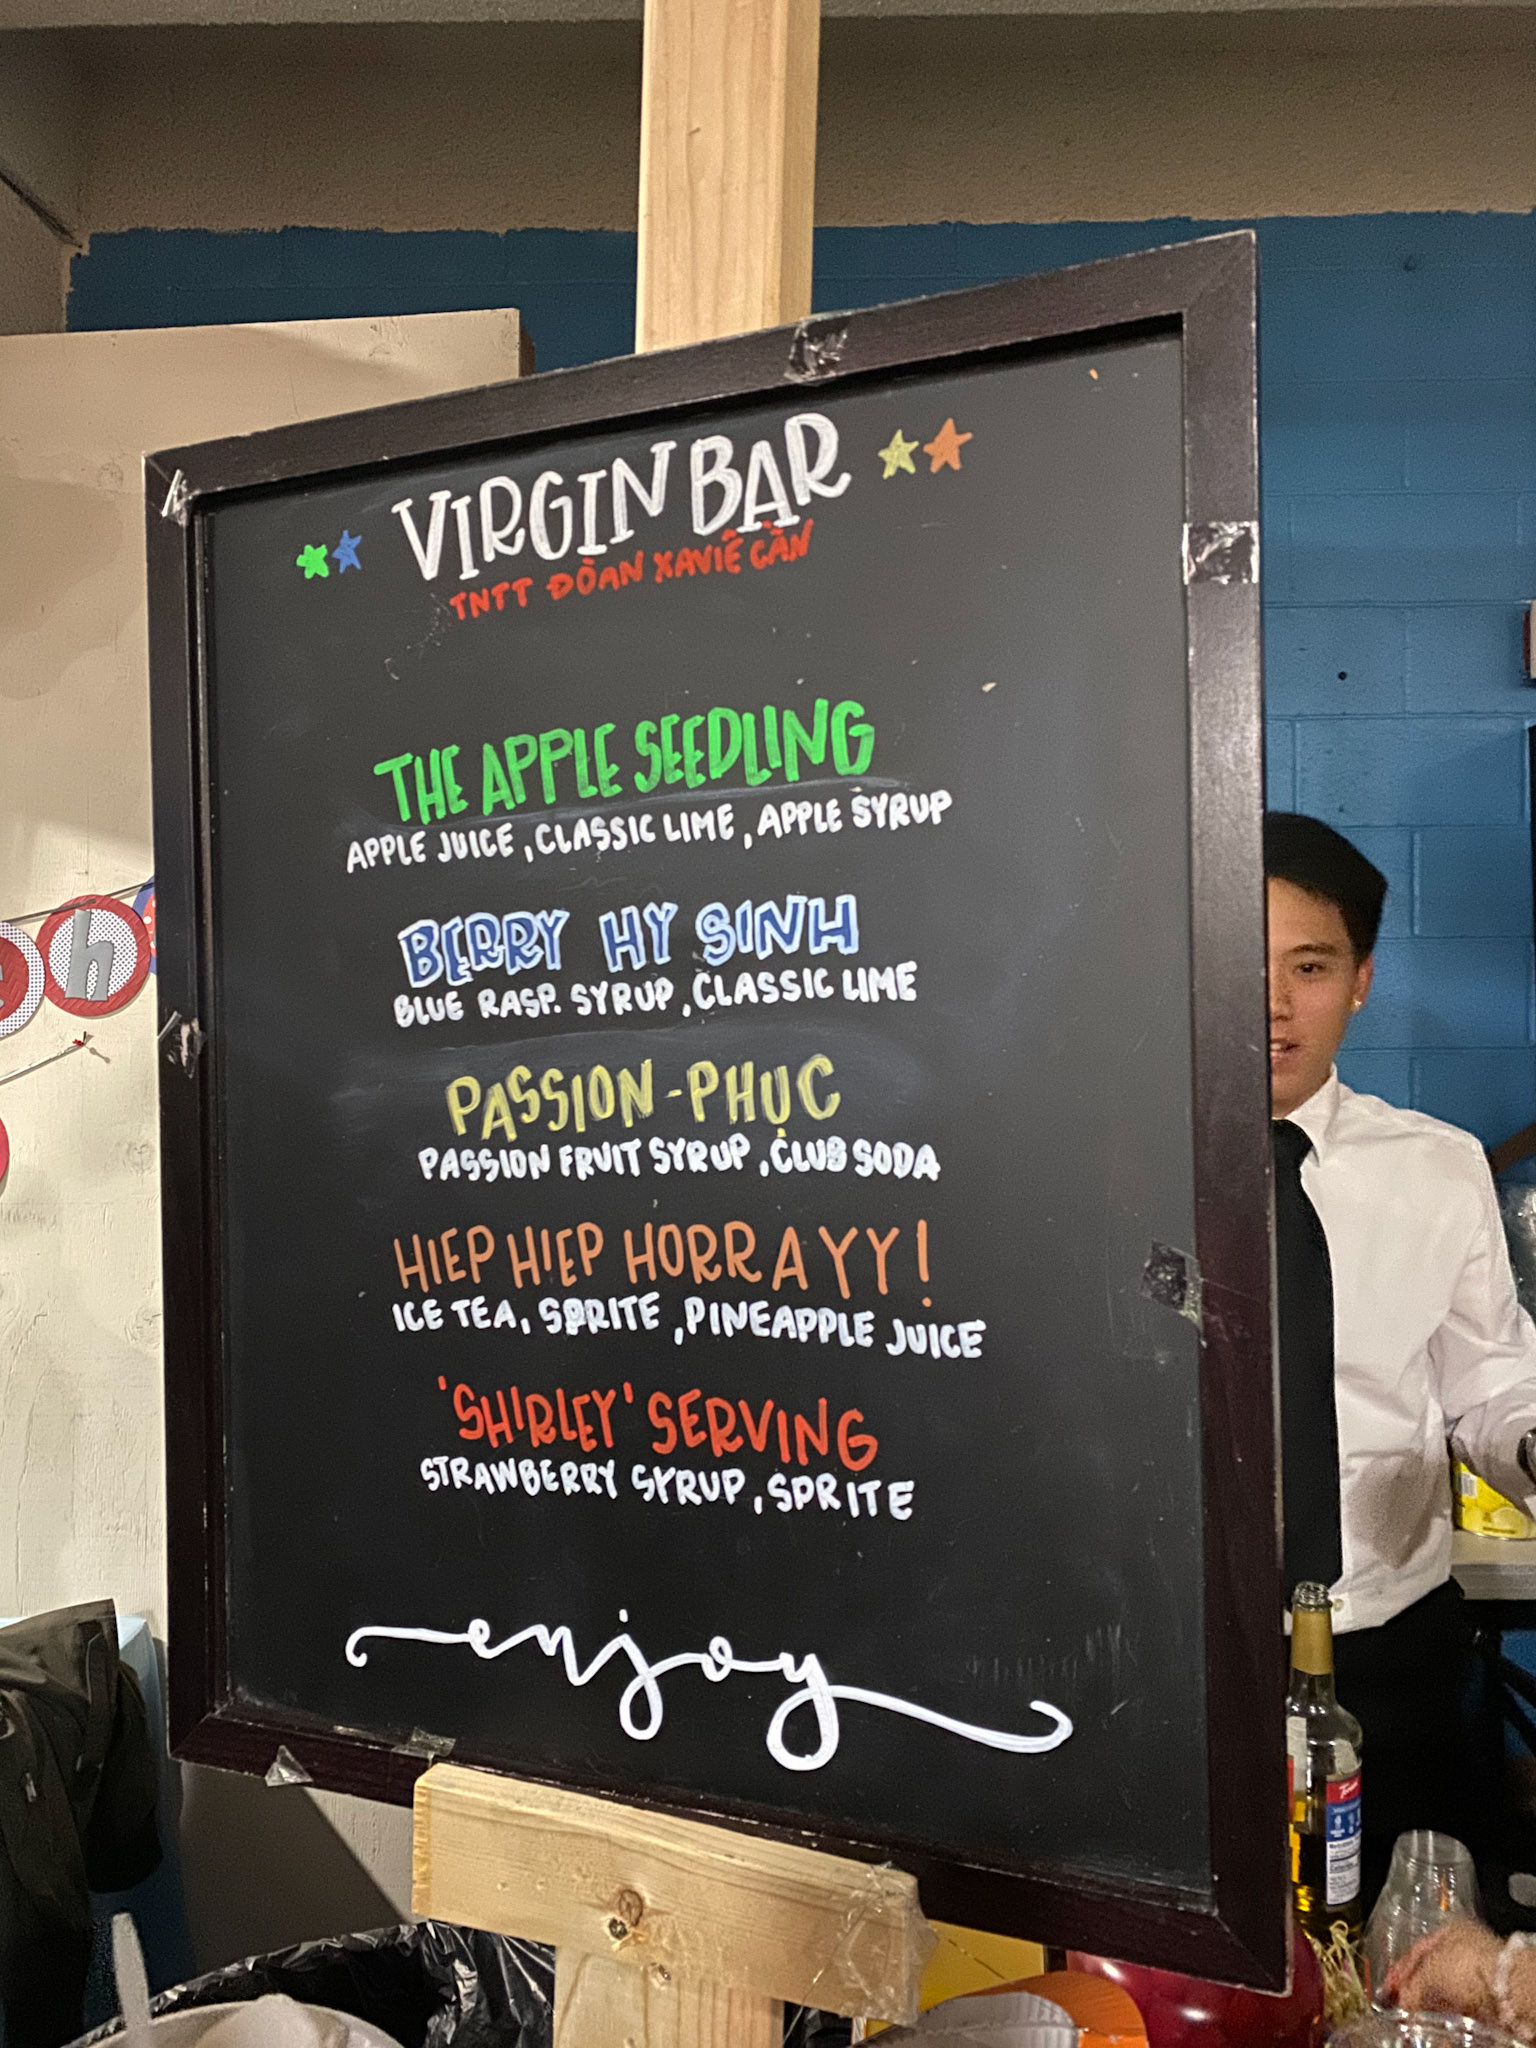 VIRGIN BAR
TNTT ĐÒAN XAVIÊ CẦN
THE APPLE SEEDLING
APPLE JUICE, CLASSIC LIME, APPLE SYRUP
BERRY HY SINH
BLUE RASP. SYRUP, CLASSIC LIME
PASSION-PHỤC
PASSION FRUIT SYRUP, CLUB SODA
HIEP HIEP HORRAYY!
ICE TEA, SPRITE, PINEAPPLE JUICE
'SHIRLEY' SERVING
STRAWBERRY SYRUP, SPRITE
enjoy
h
Torani